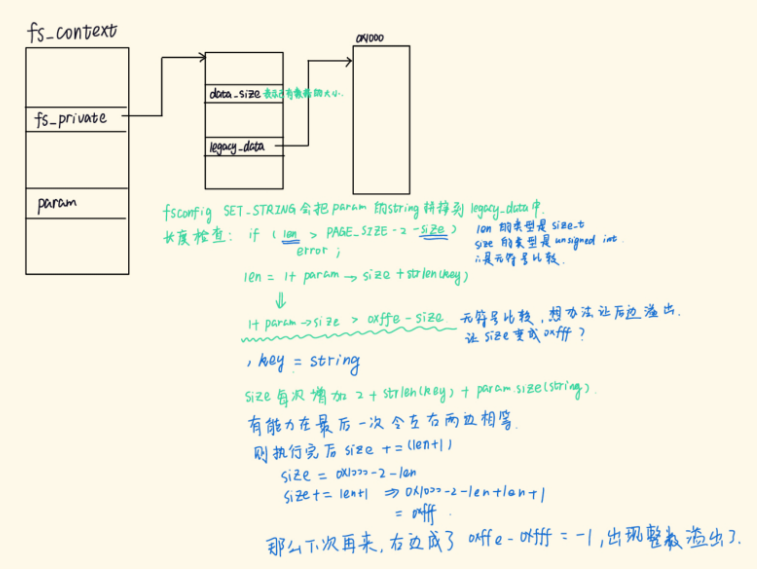 fs_context
0x1000
data_size 表示已有数据的大小.
fs_private
legacy_data
param
fsconfig SET_STRING 会把 param 的string 拼接到 legacy_data中.
长度检查: if (len > PAGE_SIZE - 2 - size)
error ;
len 的类型是 size_t
size 的类型是 unsigned int.
∴是无符号比较.
len = 1+ param → size + strlen(key)
⇓
1+ param→size > 0xffe - size
无符号比较, 想办法让右边溢出.
让 size 变成 0xfff ?
, key = string
size 每次增加 2 + strlen(key) + param.size(string)
有能力在最后一次令左右两边相等.
则执行完后 size += (len+1)
size = 0x1000 - 2 - len
size += len+1 ⇒ 0x1000 - 2 - len + len + 1
= 0xfff .
那么下次再来, 右边成了 0xffe - 0xfff = -1, 出现整数溢出了.